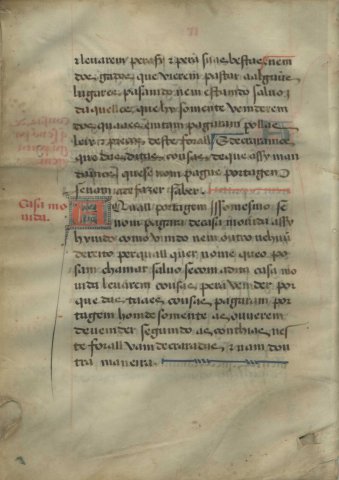 VI
e levarem pera sy e pera suas bestas nem
dos gados que vierem pastar a alguũs
lugares pasando nem estando salvo
daquelles que hy somente venderem
dos quaaes emtam pagaram pollas
leix e preços deste forall
que das ditas cousas de que assy man
damos que se nom pague portagem
se nam aja fazer saber
Casa mo
vida.
A Quall portagem isso mesmo se
nom pagara de casa movida assy
hyndo como vimdo nem outro nehuũ
dereito per quall quer nome que o po
sam chamar salvo se com a dita casa mo
vida levarem cousas pera vender por
que das taaes cousas pagaram por
tagem homde somente as ouverem
de vender segundo as conthias nes
te forall vam decraradas e nam dou
tra maneira